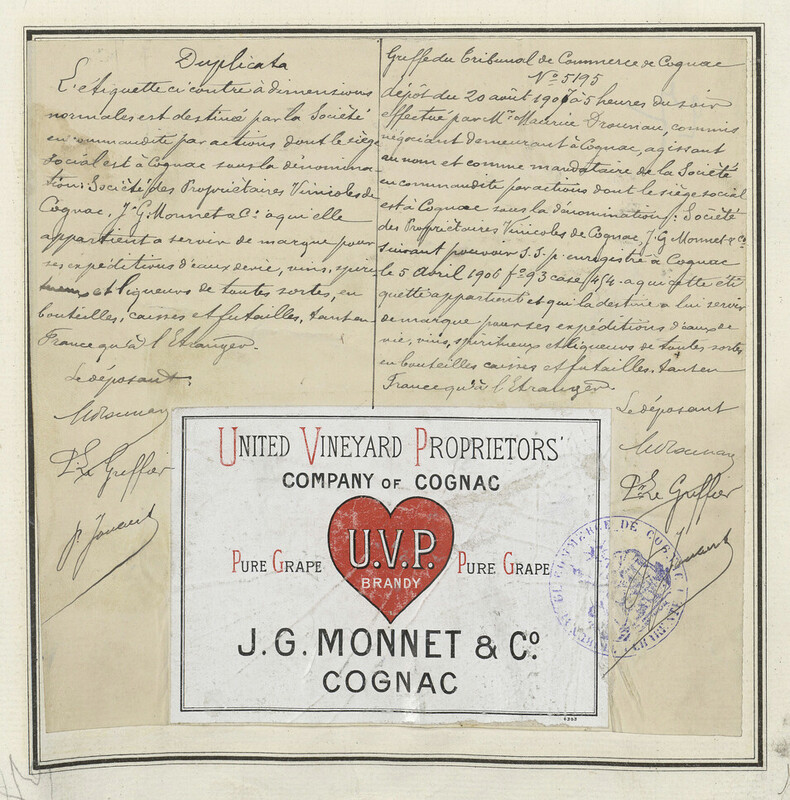 Duplicata
L'étiquette ci contre à dimensions
normales est destinée par la Société
en commandite par actions dont le siège
social est à Cognac sous la dénomina-
tion: Société des Propriétaires Vinicoles de
Cognac, J. G. Monnet & Cº a qui elle
appartient a servir de marque pour
ses expéditions d'eaux de vie, vins, spiri
tueux et liqueurs de toutes sortes, en
bouteilles, caisses et futailles, tant en
France qu'à l'Etranger.
Le déposant.
P. Le Greffier
Greffe du Tribunal de Commerce de Cognac
Nº 5195
dépôt du 20 août 1907 à 5 heures du soir
effectué par Mr Maurice Drounau, commis
négociant demeurant à Cognac, agissant
au nom et comme mandataire de la Société
en commandite par actions dont le siège social
est à Cognac sous la dénomination: Société
des Propriétaires Vinicoles de Cognac, J. G. Monnet & Cº
suivant pouvoir S.S.p. enregistré à Cognac
le 5 Avril 1906 fº 93 case 454. a qui cette éti
quette appartient et qui la destine a lui servir
de marque pour ses expéditions d'eaux de
vie, vins, spiritueux et liqueurs de toutes sortes
en bouteilles caisses et futailles. tant en
France qu'à l'Etranger.
Le déposant
Pr Le Greffier
UNITED VINEYARD PROPRIETORS'
COMPANY OF COGNAC
PURE GRAPE U.V.P. PURE GRAPE
BRANDY
J.G. MONNET & Cº
COGNAC
DE COMMERCE DE COGNAC